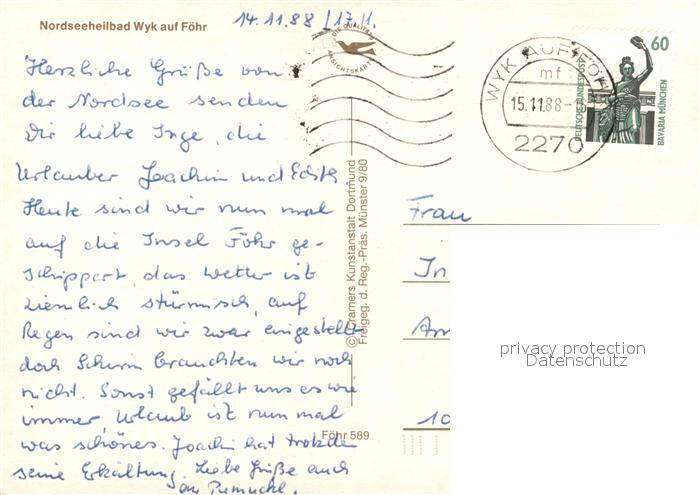 Nordseeheilbad Wyk auf Föhr
14.11.88 / 17.11.
Herzliche Grüße von
der Nordsee senden
Dir liebe Inge, die
Urlauber Joachim und Edith
Heute sind wir nun mal
auf die Insel Föhr ge-
schippert, das Wetter ist
ziemlich stürmisch, auf
Regen sind wir zwar eingestellt
doch Schirm brauchten wir noch
nicht. Sonst gefällt uns es wie
immer, Urlaub ist nun mal
was schönes. Joachim hat trotzdem
seine Erkältung. Liebe Grüße auch
an
DIE QUALITÄTS
ANSICHTSKARTE
© Cramers Kunstanstalt Dortmund
Freigeg. d. Reg.-Präs. Münster 9/80
Föhr 589
WYK AUF FÖHR
mf
15.11.88-
2270
60
DEUTSCHE BUNDESPOST
BAVARIA MÜNCHEN
Frau
In
Am
10
privacy protection
Datenschutz